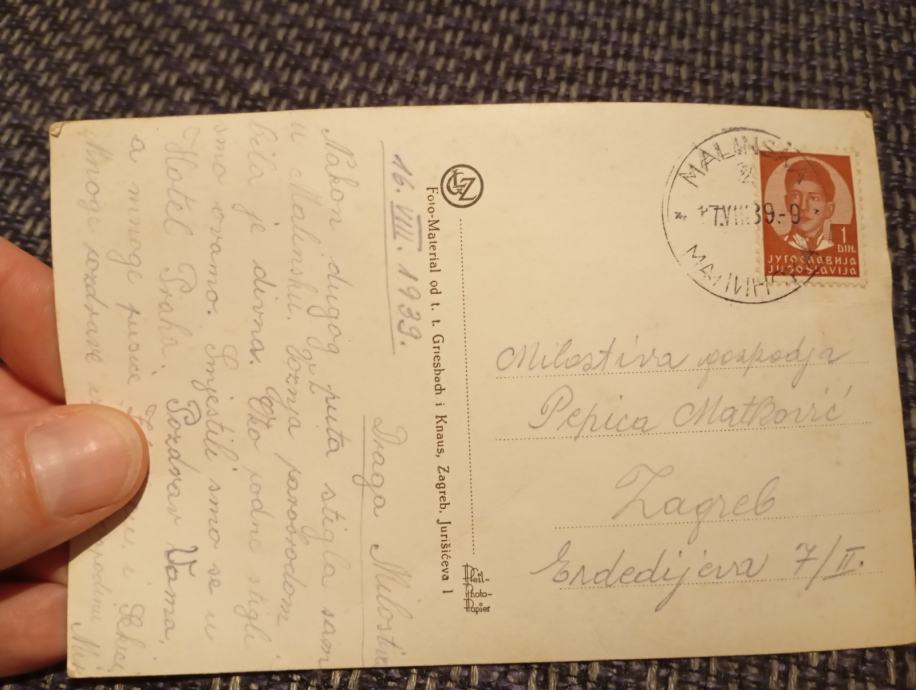 16. VIII. 1939.
Draga Milostiva
Nakon dugog puta stigla sam
u Malinsku. Vožnja parobrodom
bila je divna. Oko podne stigli
smo ovamo. Smjestili smo se u
Hotel Praha. Pozdrav Vama,
a mnoge pusice i
Mnogo pozdrava
Foto-Material od t. t. Griesbach i Knaus, Zagreb, Jurišićeva 1
MALINSKA
17.VIII.39.-9
МАЛИНСКА
1
DIN.
ЈУГОСЛАВИЈА
JUGOSLAVIJA
Milostiva gospodja
Pepica Matković
Zagreb
Erdedijeva 7/II.